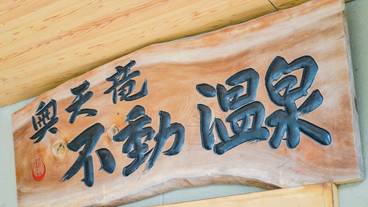 奥天竜
不動温泉